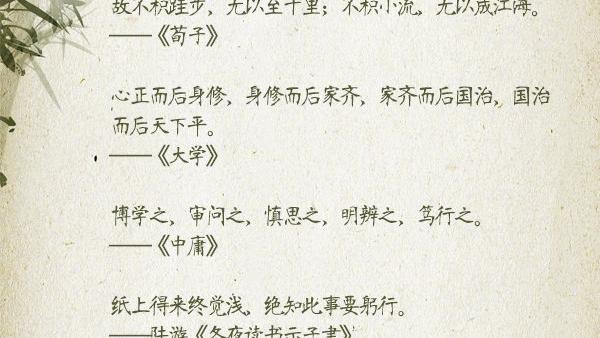 故不积跬步，无以至千里；不积小流，无以成江海。
——《荀子》
心正而后身修，身修而后家齐，家齐而后国治，国治
而后天下平。
——《大学》
博学之，审问之，慎思之，明辨之，笃行之。
——《中庸》
纸上得来终觉浅，绝知此事要躬行。
——陆游《冬夜读书示子聿》